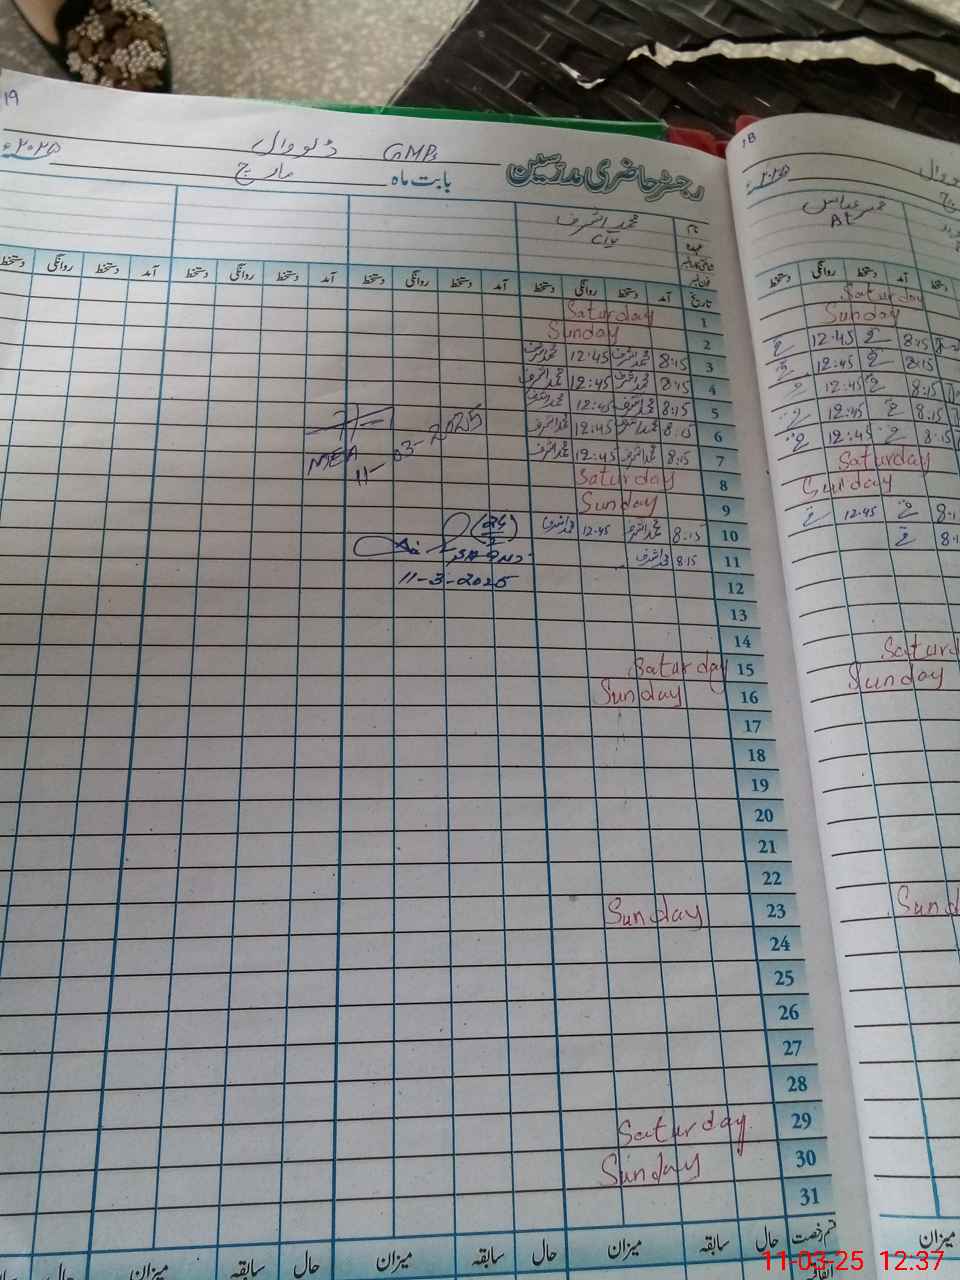 19
GMPS ڈلووال
رجسٹر حاضری مدرسین
بابت ماہ مارچ ۲۰۲۵ء
نام محمد اشرف
عہدہ CIV
تاریخ آمد دستخط روانگی دستخط آمد دستخط روانگی دستخط آمد دستخط روانگی دستخط آمد دستخط روانگی دستخط
1 Saturday
2 Sunday
3 8:15 محمد اشرف 12:45 محمد اشرف
4 8:15 محمد اشرف 12:45 محمد اشرف
5 8:15 محمد اشرف 12:45 محمد اشرف
6 8:15 محمد اشرف 12:45 محمد اشرف
7 8:15 محمد اشرف 12:45 محمد اشرف
MEA
11-03-2025
8 Saturday
9 Sunday
10 8:15 محمد اشرف 12:45 محمد اشرف
11 8:15 محمد اشرف
11-3-2025
12
13
14
15 Saturday
16 Sunday
17
18
19
20
21
22
23 Sunday
24
25
26
27
28
29 Saturday
30 Sunday
31
قسم رخصت حال سابقہ میزان حال سابقہ میزان حال سابقہ میزان حال
اتفاقیہ
18
۲۰۲۵ء
عباس
At
دستخط آمد دستخط روانگی دستخط
Saturday
Sunday
8:15 12:45
8:15 12:45
8:15 12:45
8:15 12:45
8:15 12:45
Saturday
Sunday
8:1 12:45
8:1
Saturd
Sunday
Sund
میزان
11-03-25 12:37